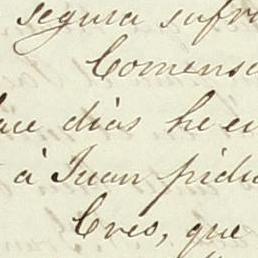 segura sufr
Comens
hace dias he en
à Juan pidi
Cres, que